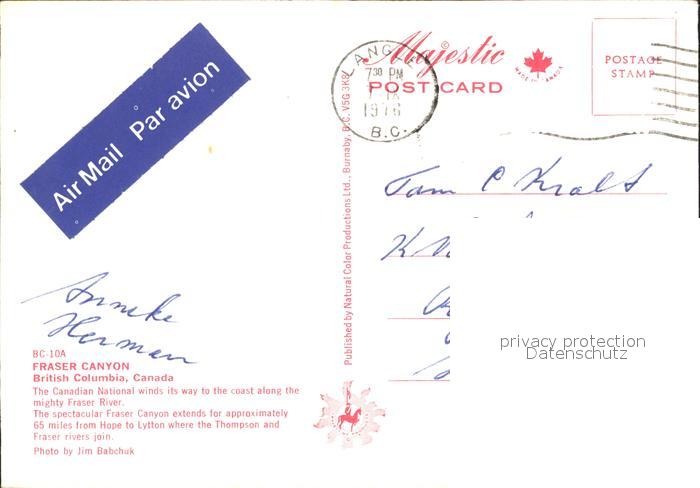 Air Mail Par avion
Anneke
Herman
BC-10A
FRASER CANYON
British Columbia, Canada
The Canadian National winds its way to the coast along the
mighty Fraser River.
The spectacular Fraser Canyon extends for approximately
65 miles from Hope to Lytton where the Thompson and
Fraser rivers join.
Photo by Jim Babchuk
Published by Natural Color Productions Ltd., Burnaby, B.C. V5G 3K8
Majestic
POST CARD
MADE IN CANADA
7:30 PM
1976
B.C.
POSTAGE
STAMP
Fam
privacy protection
Datenschutz